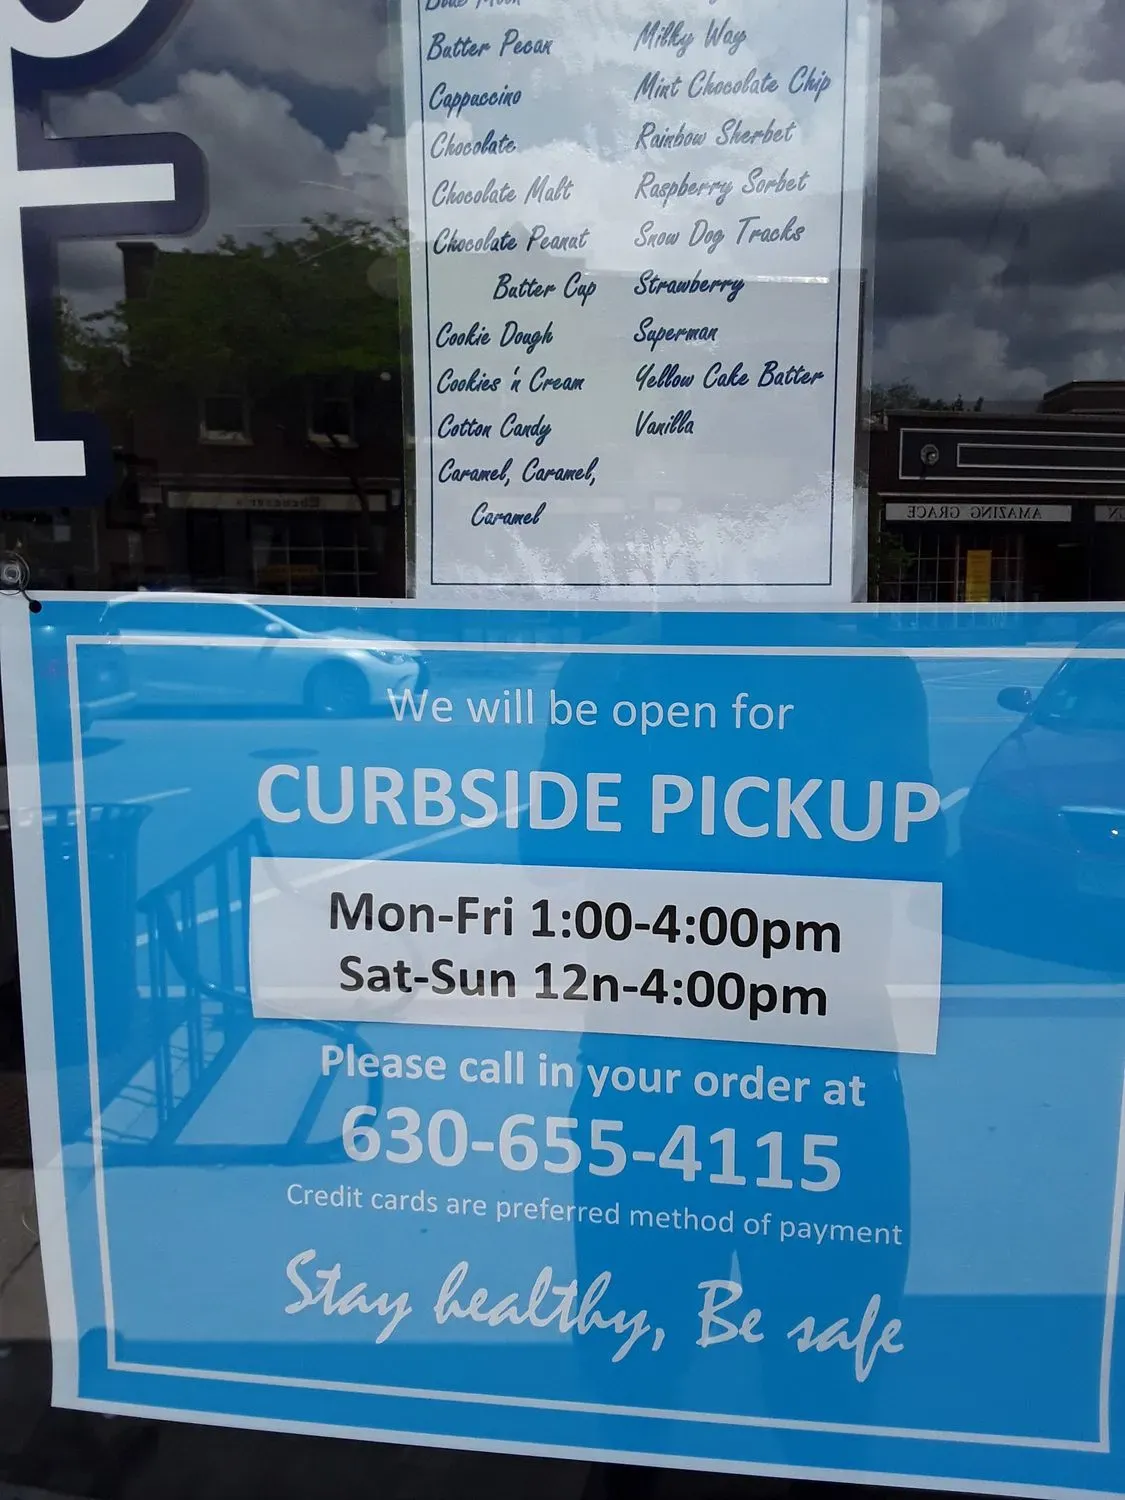 Blue Moon
Butter Pecan
Cappuccino
Chocolate
Chocolate Malt
Chocolate Peanut
Butter Cup
Cookie Dough
Cookies 'n Cream
Cotton Candy
Caramel, Caramel,
Caramel
Milky Way
Mint Chocolate Chip
Rainbow Sherbet
Raspberry Sorbet
Snow Dog Tracks
Strawberry
Superman
Yellow Cake Batter
Vanilla
AMAZING GRACE
We will be open for
CURBSIDE PICKUP
Mon-Fri 1:00-4:00pm
Sat-Sun 12n-4:00pm
Please call in your order at
630-655-4115
Credit cards are preferred method of payment
Stay healthy, Be safe